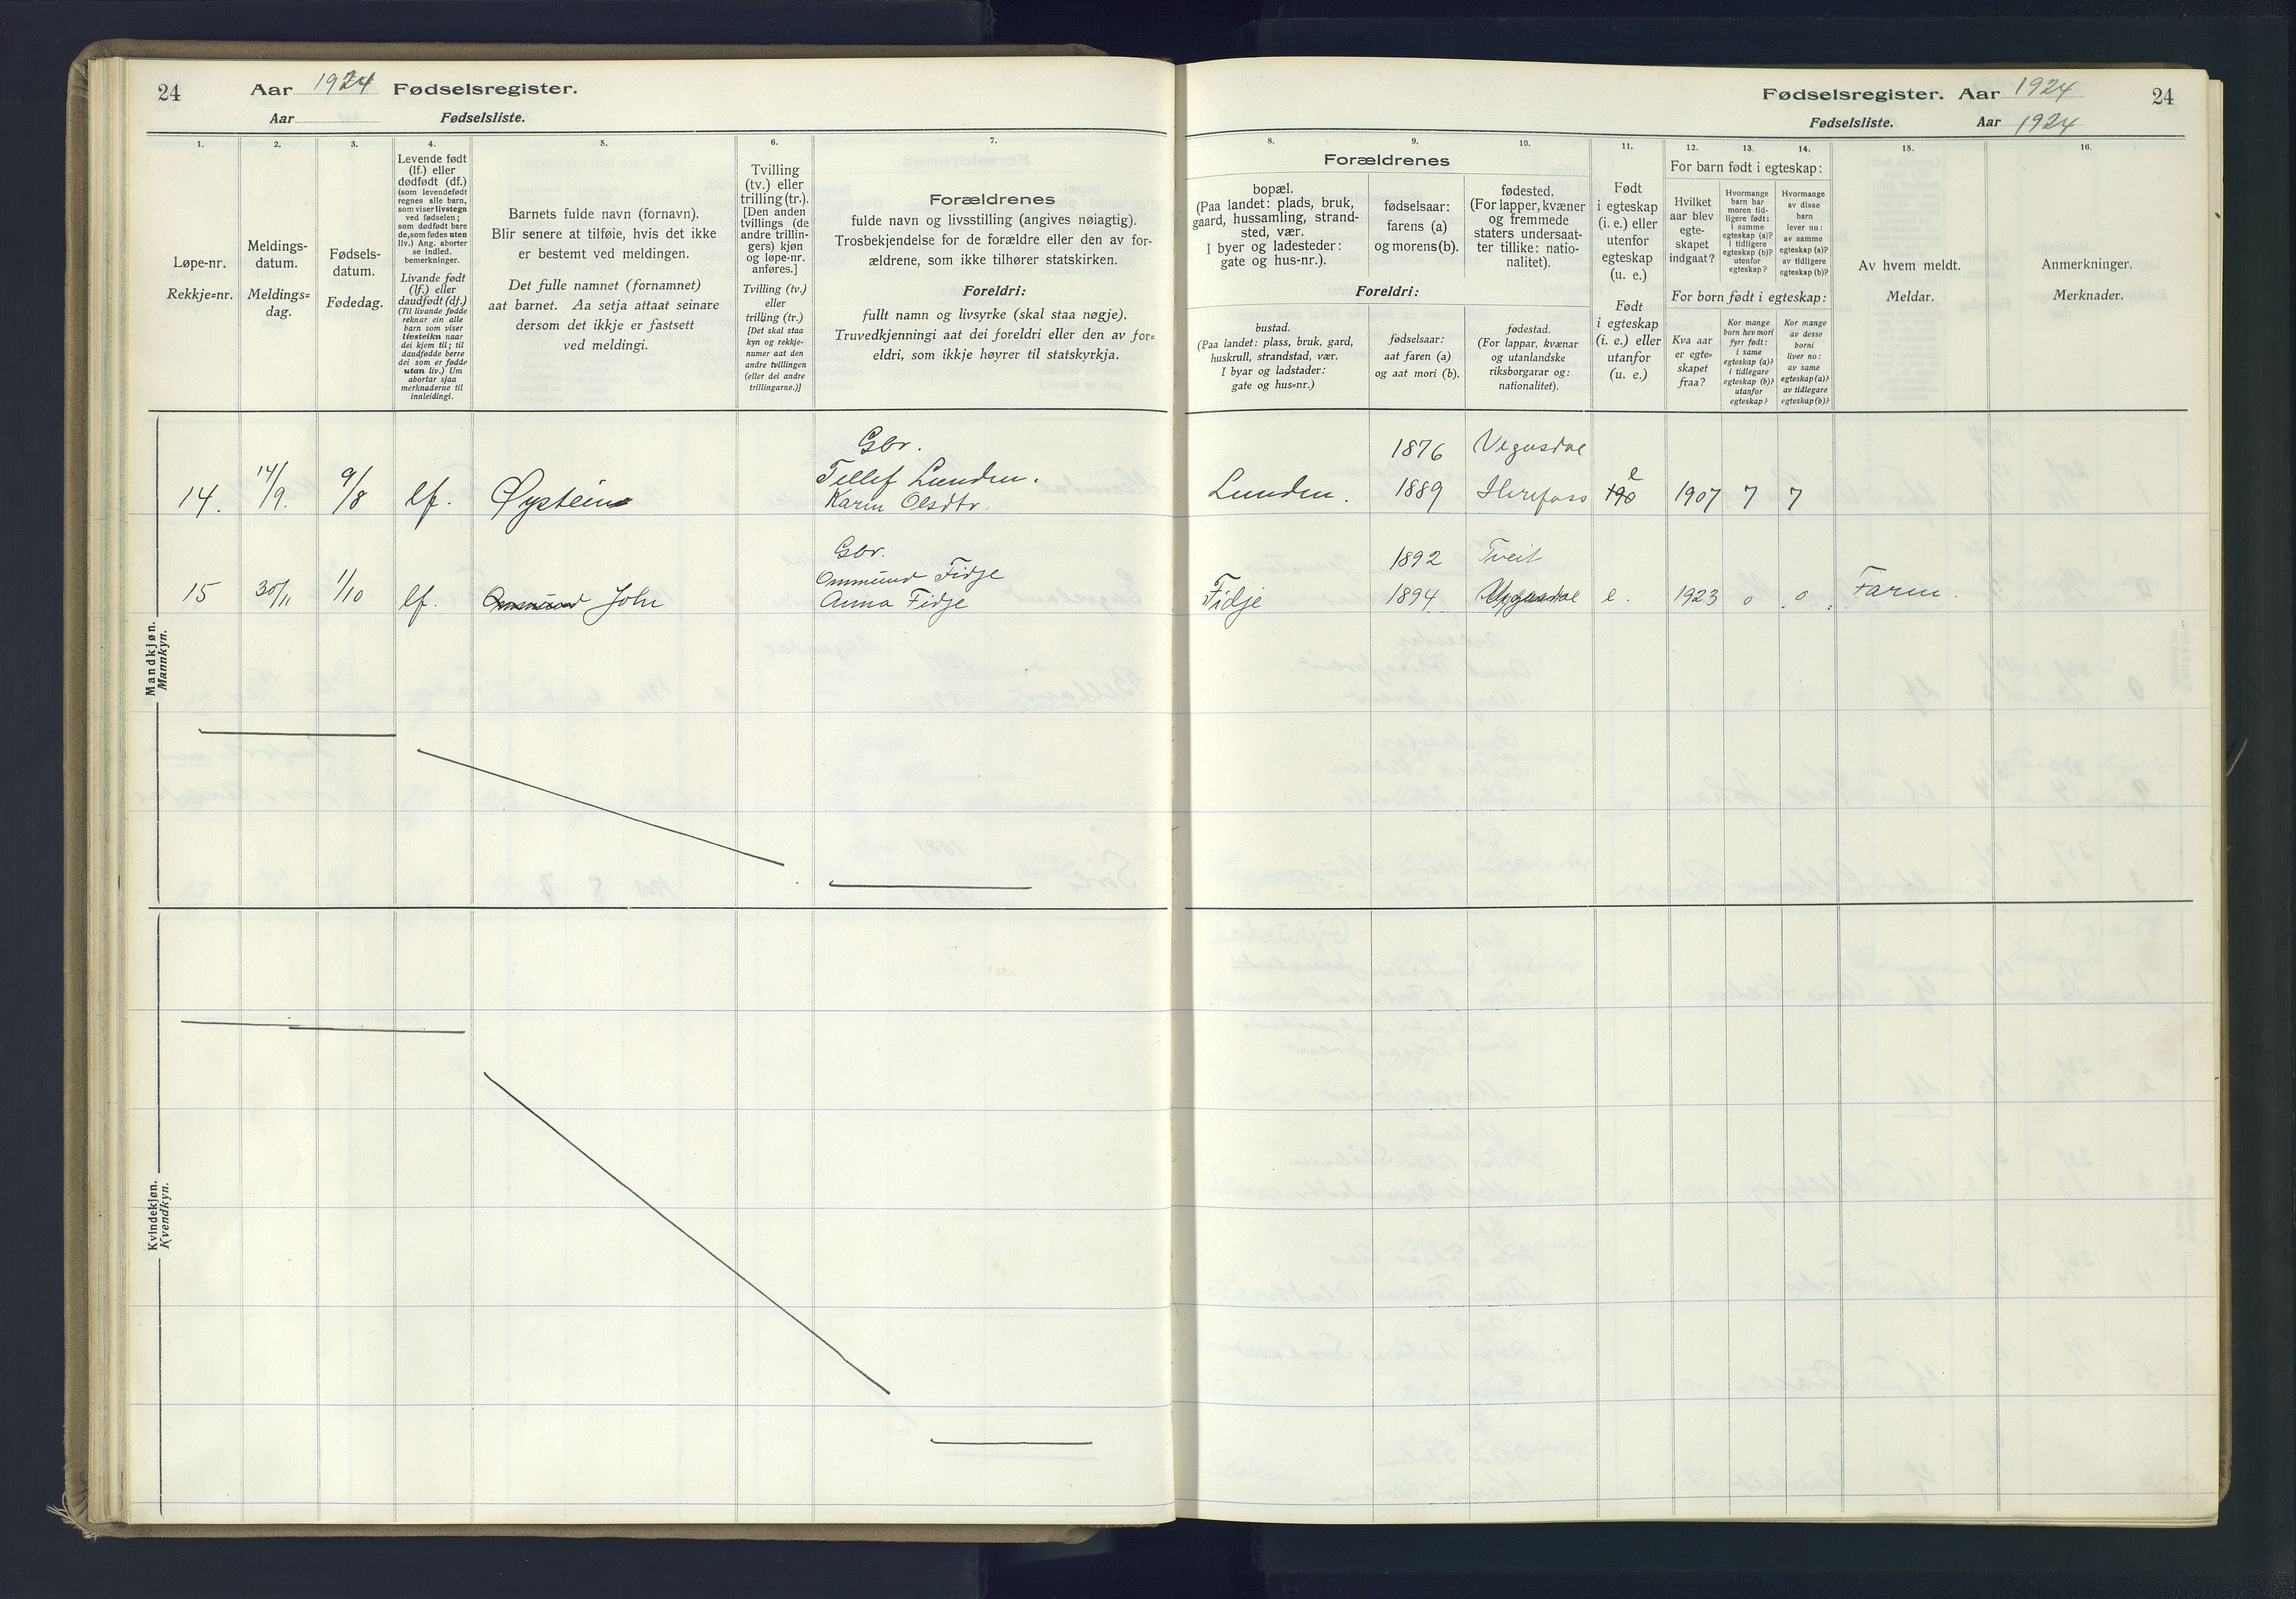 24
Aar 1924 Fødselsregister.
Aar Fødselsliste.
1.
Løpe-nr.
Rekkje=nr.
2.
Meldings-
datum.
Meldings=
dag.
3.
Fødsels-
datum.
Fødedag.
4.
Levende født
(lf.) eller
dødfødt (df.)
(som levendefødt
regnes alle barn,
som viser livstegn
ved fødselen;
som dødfødt bare
de, som fødes uten
liv.) Ang. aborter
se indled.
bemerkninger.
Livande født
(lf.) eller
daudfødt (df.)
(Til livande fødde
reknar ein alle
barn som viser
livsteikn naar
dei kjem til; til
daudfødde berre
dei som er fødde
utan liv.) Um
abortar sjaa
merknaderne til
innleidingi.
5.
Barnets fulde navn (fornavn).
Blir senere at tilføie, hvis det ikke
er bestemt ved meldingen.
Det fulle namnet (fornamnet)
aat barnet. Aa setja attaat seinare
dersom det ikkje er fastsett
ved meldingi.
6.
Tvilling
(tv.) eller
trilling (tr.).
[Den anden
tvillings (de
andre trillin-
gers) kjøn
og løpe-nr.
anføres.]
Tvilling (tv.)
eller
trilling (tr.)
[Det skal staa
kyn og rekkje-
numer aat den
andre tvillingen
(eller dei andre
trillingarne.)]
7.
Forældrenes
fulde navn og livsstilling (angives nøiagtig).
Trosbekjendelse for de forældre eller den av for-
ældrene, som ikke tilhører statskirken.
Foreldri:
fullt namn og livsyrke (skal staa nøgje).
Truvedkjenningi aat dei foreldri eller den av for=
eldri, som ikkje høyrer til statskyrkja.
Mandkjøn.
Mannkyn.
Gbr.
14. 14/9. 9/8 lf. Øystein Tellef Lunden.
Karin Olsdtr.
Gbr.
Ommund Fidje
15 30/11 1/10 lf. Ommund John Anna Fidje
Kvindekjøn.
Kvendkyn.
Fødselsregister. Aar 1924
24
Fødselsliste. Aar 1924
8. 9. 10.
Forældrenes
bopæl.
(Paa landet: plads, bruk,
gaard, hussamling, strand-
sted, vær.
I byer og ladesteder:
gate og hus-nr.).
fødselsaar:
farens (a)
og morens (b).
fødested.
(For lapper, kvæner
og fremmede
staters undersaat-
ter tillike: natio-
nalitet).
Foreldri:
bustad.
(Paa landet: plass, bruk, gard,
huskrull, strandstad, vær.
I byar og ladstader:
gate og hus=nr.)
fødselsaar:
aat faren (a)
og aat mori (b).
fødestad.
(For lappar, kvænar
og utanlandske
riksborgarar og:
nationalitet).
11.
Født
i egteskap
(i. e.) eller
utenfor
egteskap
(u. e.)
Født
i egteskap
(i. e.) eller
utanfor
(u. e.)
12. 13. 14.
For barn født i egteskap:
Hvilket
aar blev
egte-
skapet
indgaat?
Hvormange
barn har
moren tid-
ligere født:
i samme
egteskap (a)?
i tidligere
egteskap (b)?
utenfor
egteskap?
Hvormange
av disse
barn
lever nu:
av samme
egteskap (a)?
av tidligere
egteskap (b)?
For born født i egteskap:
Kva aar
er egte=
skapet
fraa?
Kor mange
born hev mori
fyrr født:
i same
egteskap (a)?
i tidlegare
egteskap (b)?
utanfor
egteskap?
Kor mange
av desse
borni
liver no:
av same
egteskap (a)?
av tidlegare
egteskap (b)?
15.
Av hvem meldt.
Meldar.
16.
Anmerkninger.
Merknader.
1876 Vegusdal
Lunden. 1889 Herefoss e 1907 7 7
1892 Tveit
Fidje 1894 Vegusdal e. 1923 0 0 Faren.